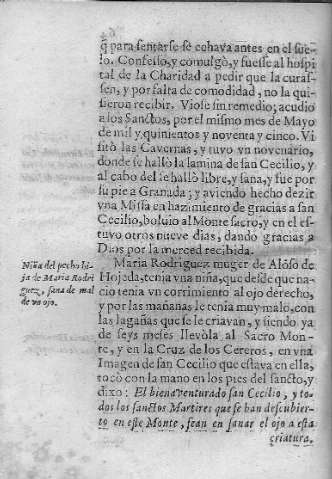 q̃ para sentarse se echava antes en el sue-
lo. Confesso, y comulgò, y fuesse al hospi
tal de la Charidad a pedir que la curas-
sen, y por falta de comodidad, no la qui-
sieron recibir. Viose sin remedio; acudio
a los Sanctos, por el mismo mes de Mayo
de mil y quinientos y noventa y cinco. Vi
sitò las Cavernas, y tuvo vn novenario,
donde se hallò la lamina de san Cecilio, y
al cabo del se hallò libre, y sana, y fue por
su pie a Granada; y aviendo hecho dezir
vna Missa en hazimiento de gracias a san
Cecilio, bolvio al Monte sacro, y en el es-
tuvo otros nueve dias, dando gracias a
Dios por la merced recibida.
Niña del pecho hi-
ja de Maria Rodri
guez, sana de mal
de vn ojo.
Maria Rodriguez muger de Alõso de
Hojeda, tenia vna niña, que desde que na-
cio tenia vn corrimiento al ojo derecho,
y por las mañanas le tenia muy malo, con
las lagañas que se le criavan, y siendo ya
de seys meses llevòla al Sacro Mon-
te, y en la Cruz de los Cereros, en vna
Imagen de san Cecilio que estava en ella,
tocò con la mano en los pies del sancto, y
dixo: El bienaventurado san Cecilio, y to-
dos los sanctos Martires que se han descubier-
to en este Monte, sean en sanar el ojo a esta
criatura.